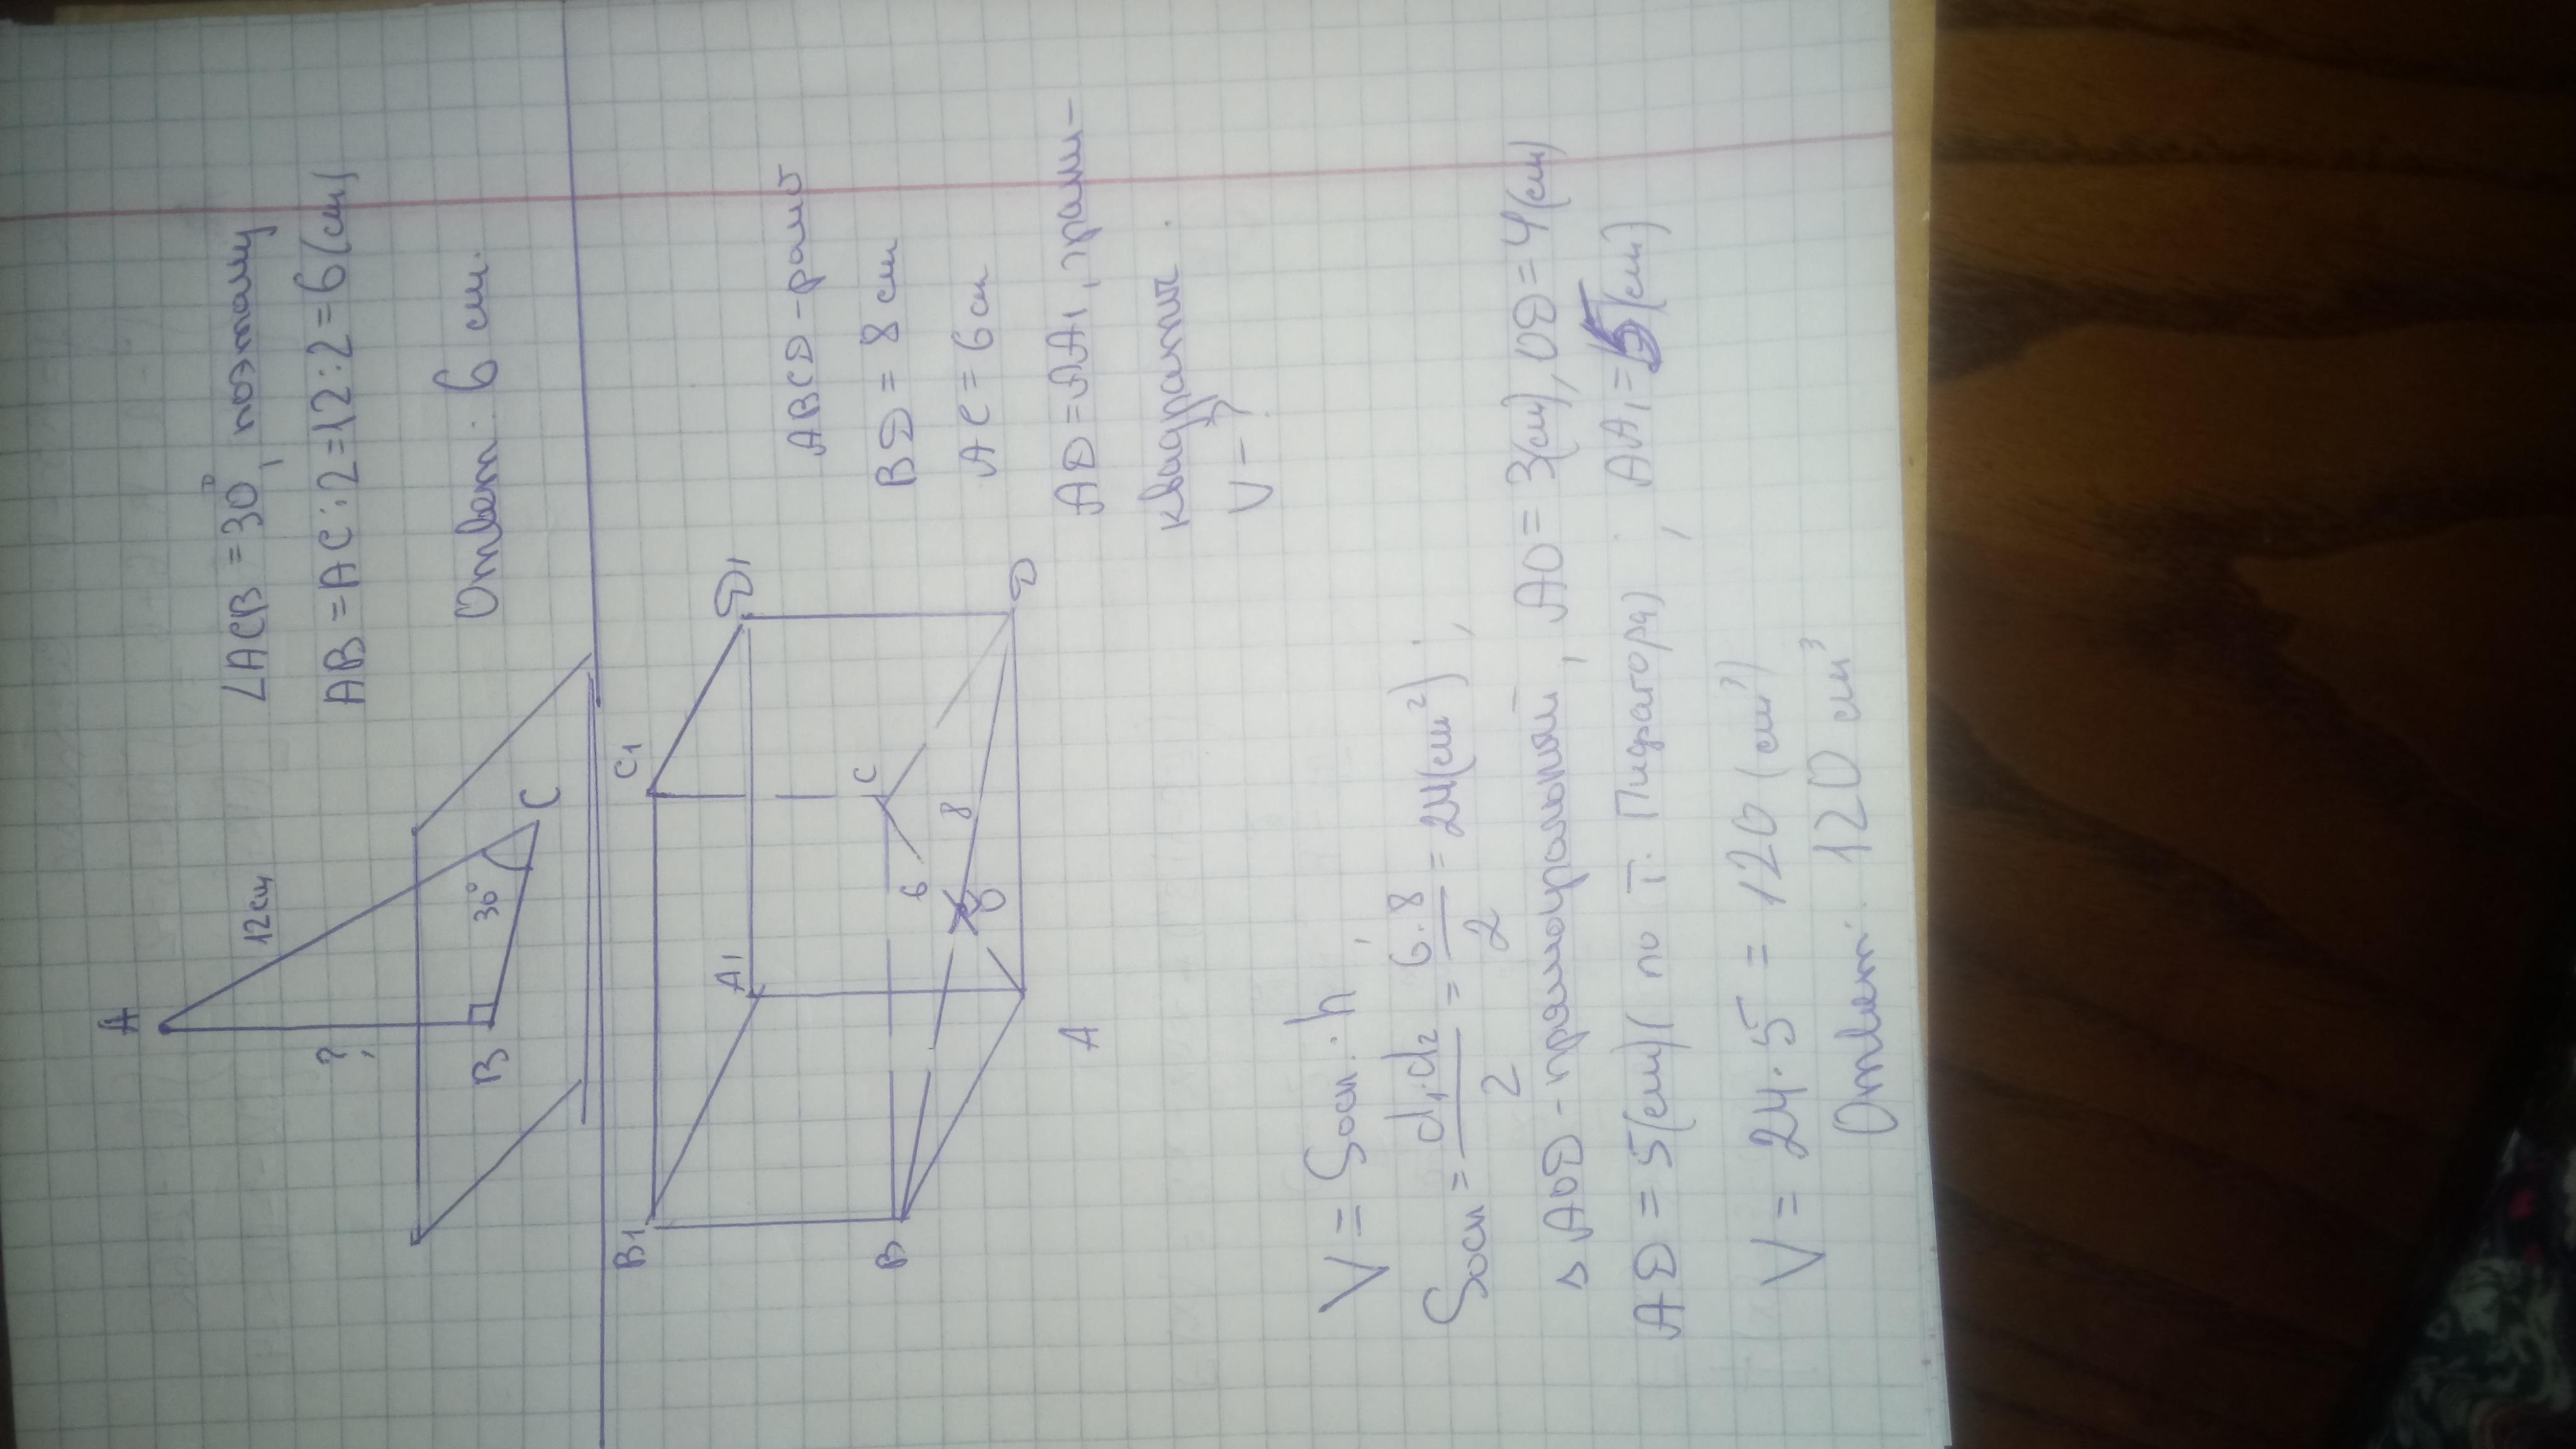 A
12 см
?
B
30°
C
∠ACB = 30°, поэтому
AB = AC : 2 = 12 : 2 = 6 (см)
Ответ: 6 см.
B1
C1
A1
D1
B
C
6
8
O
A
D
ABCD - ромб
BD = 8 см
AC = 6 см
AD = AA1, грани -
квадраты.
V - ?
V = Sосн · h
Sосн = d1·d2/2 = 6·8/2 = 24 (см²);
Δ AOD - прямоугольный, AO = 3 (см), OD = 4 (см)
AD = 5 (см) (по т. Пифагора); AA1 = 5 (см)
V = 24 · 5 = 120 (см³)
Ответ: 120 см³